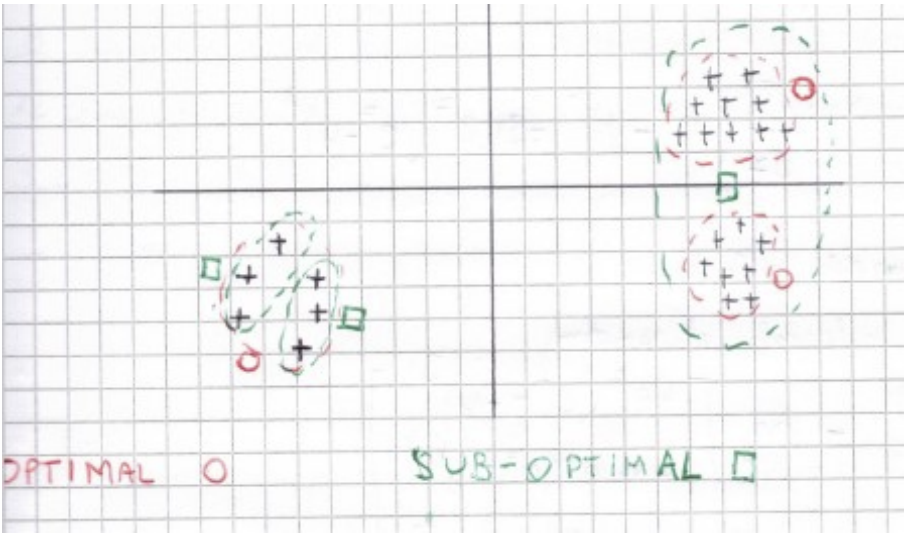 OPTIMAL
SUB-OPTIMAL